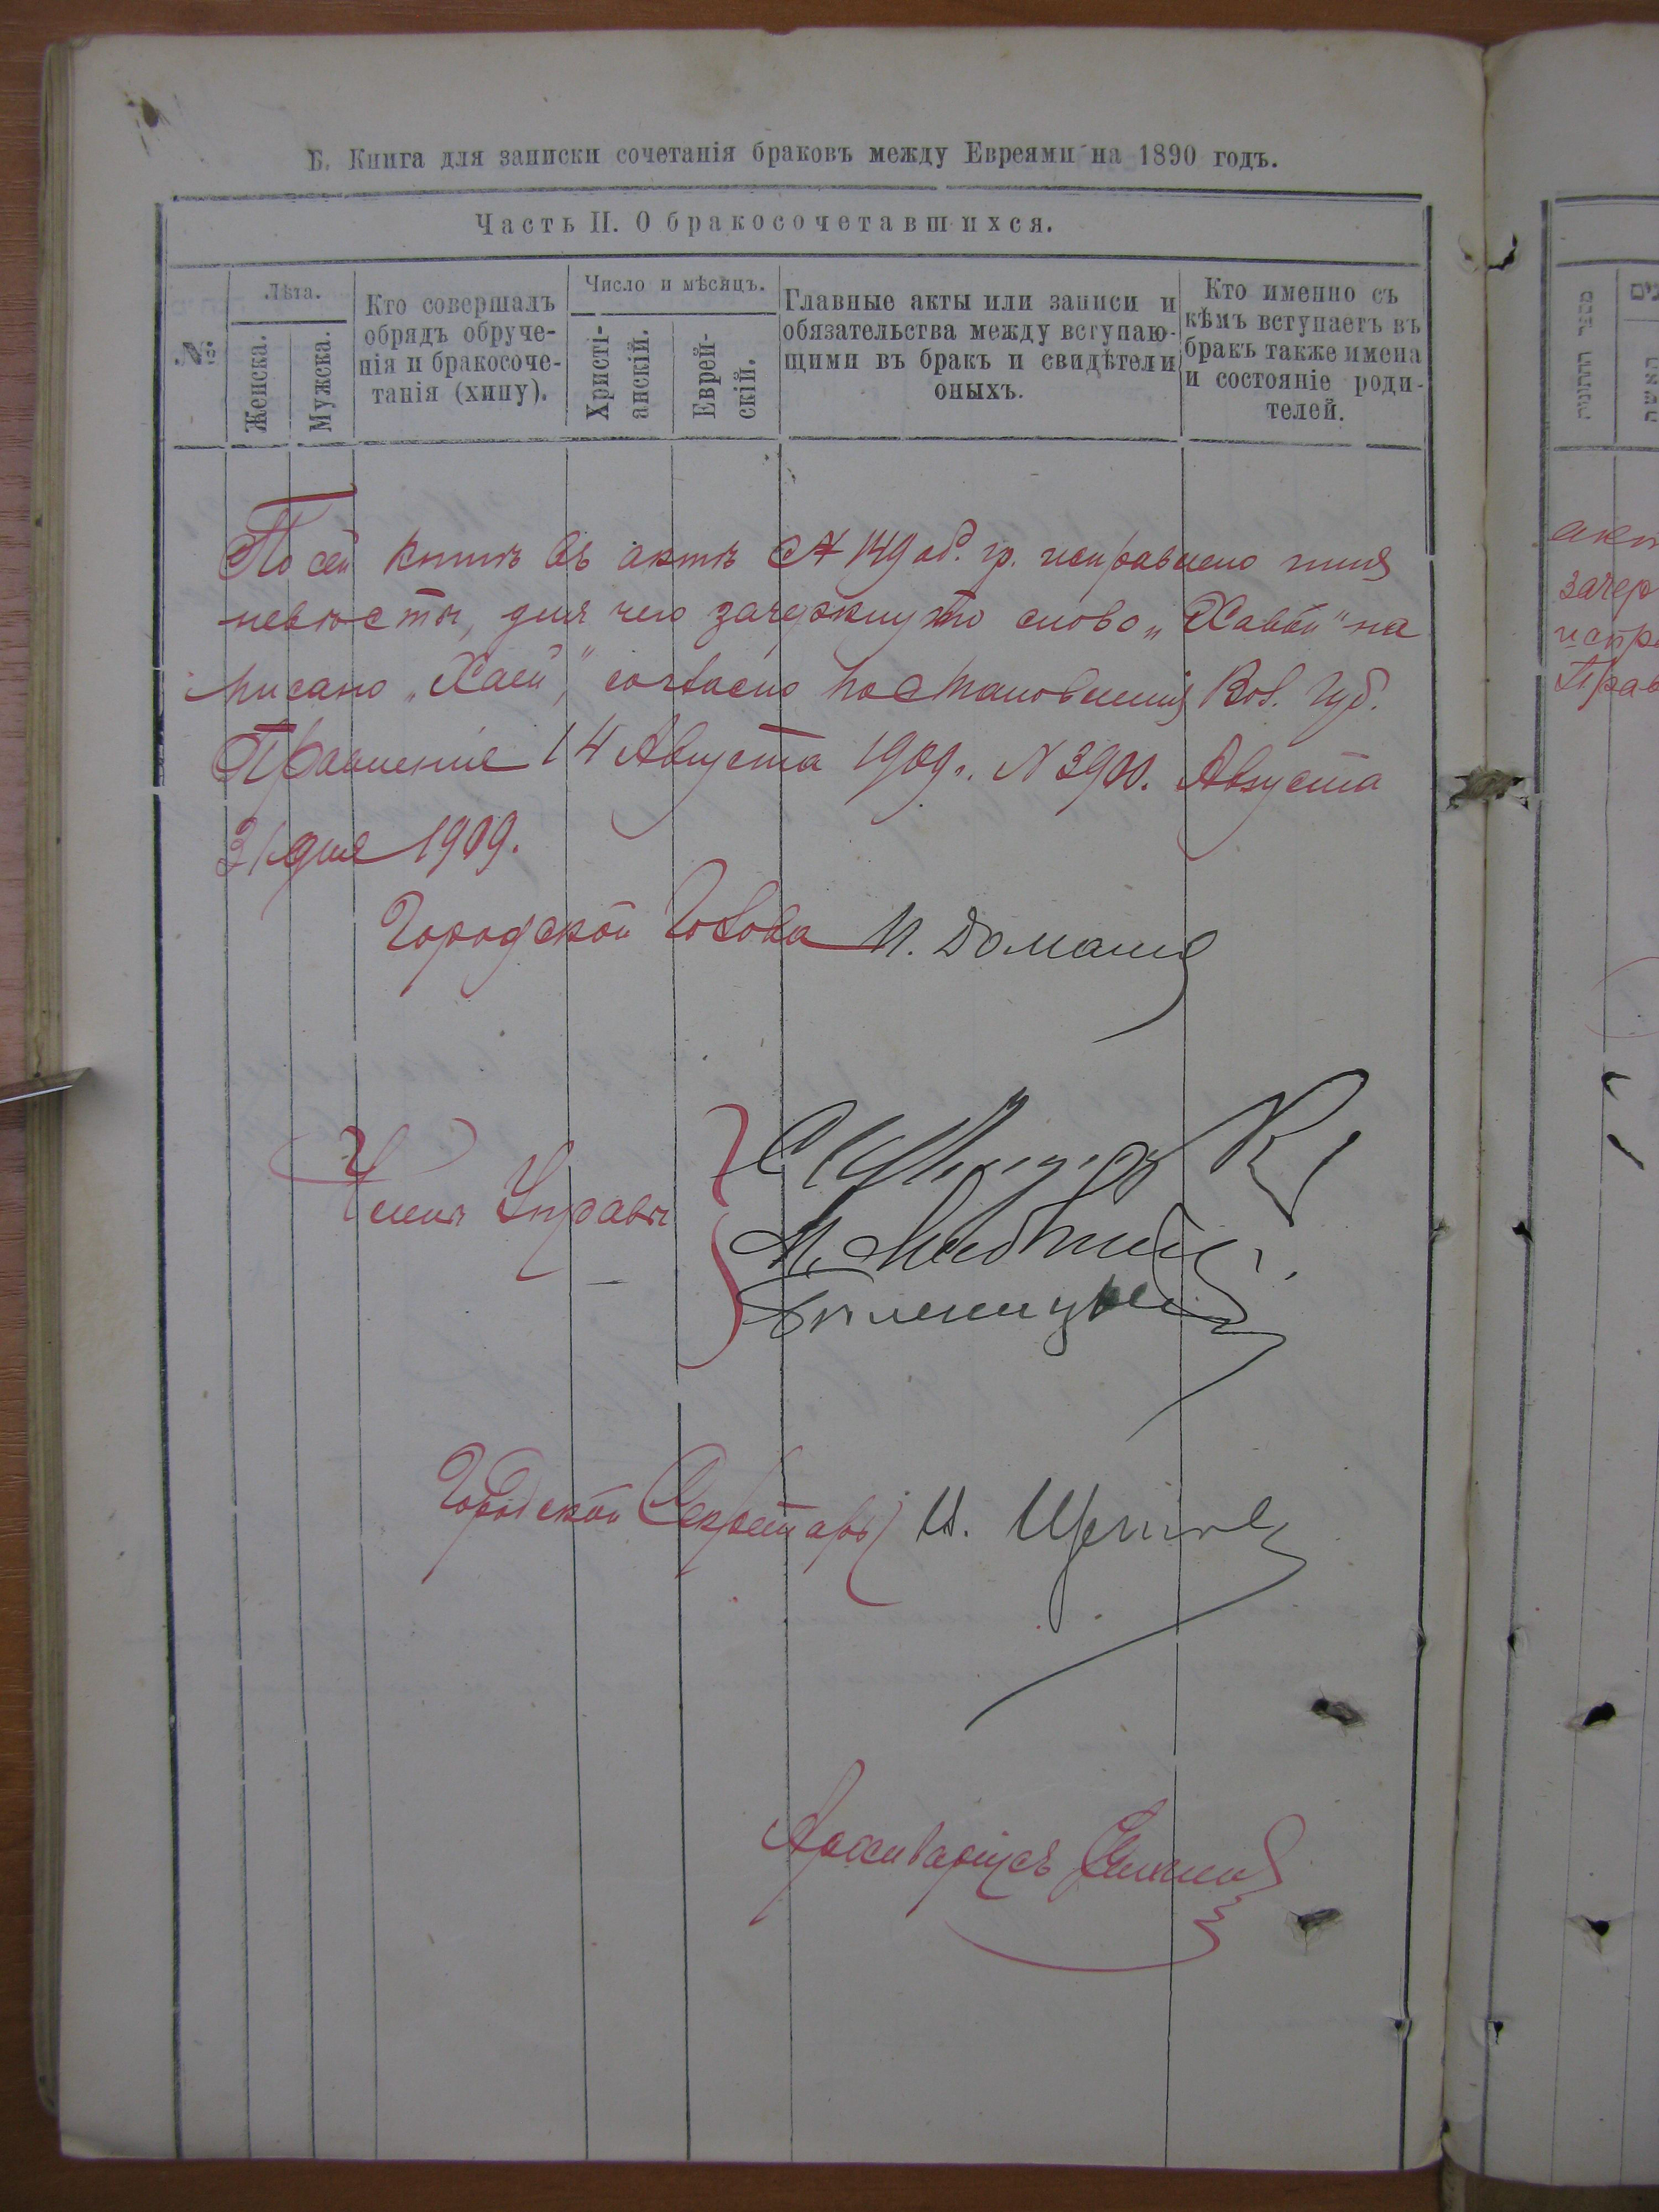 Б. Книга для записки сочетанія браковъ между Евреями на 1890 годъ.
Часть II. О бракосочетавшихся.
№
Лѣта.
Женска.
Мужска.
Кто совершалъ
обрядъ обруче-
нія и бракосоче-
танія (хипу).
Число и мѣсяцъ.
Христі-
анскій.
Еврей-
скій.
Главные акты или записи и
обязательства между вступаю-
щими въ бракъ и свидѣтели
оныхъ.
Кто именно съ
кѣмъ вступаетъ въ
бракъ также имена
и состояніе роди-
телей.
По сей книгѣ въ актѣ № 149 об. гр. исправлено имя
невѣсты, для чего зачеркнуто слово „Хаввы" на
писано „Хаей", согласно постановленія Вол. Губ.
Правленія 14 Августа 1909 г. N 3900. Августа
31 дня 1909.
Городской Голова И. Домани
Члены Управы
Городской Секретарь И.
Архиваріусъ
מספר החתונות
האשה
акт
зачер
испр
Прав